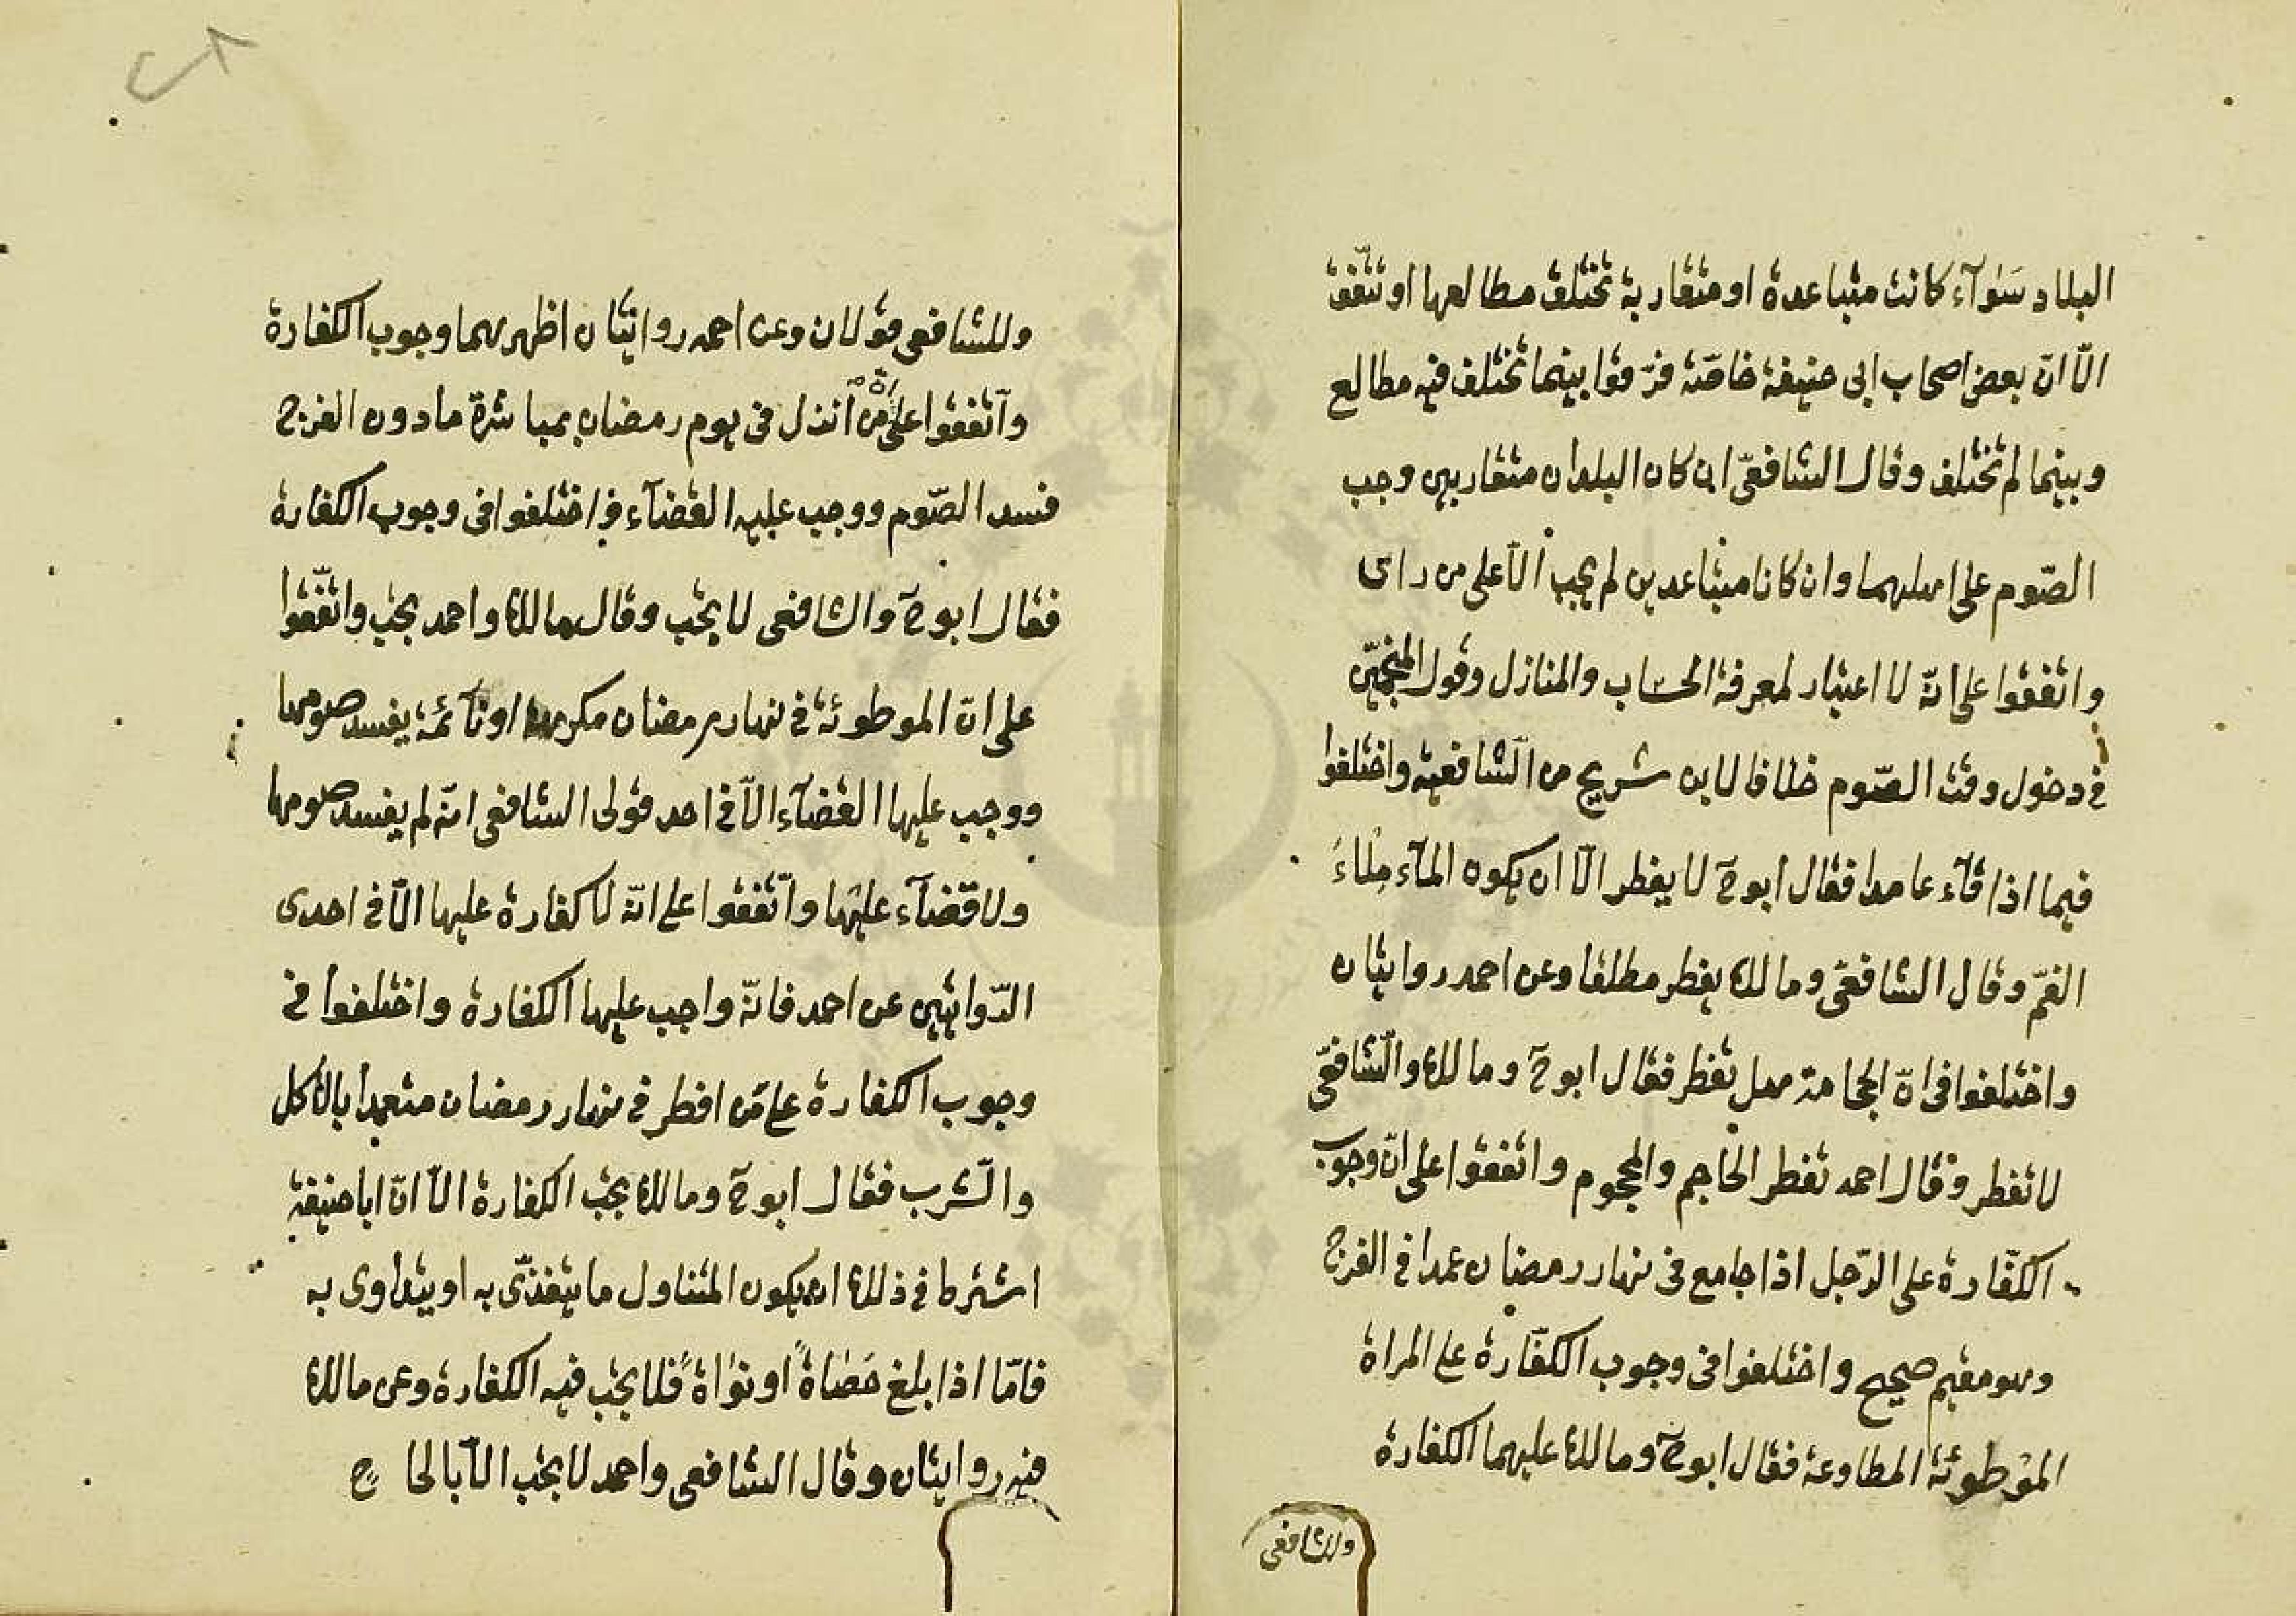 البلاد سَوآء كانت متباعدة او متقاربة تختلف مطالعها او تتّفق
الّا انّ بعض اصحاب ابى حنيفة خاصّة فرّقوا بينما تختلف فيه مطالع
وبينما لم تختلف وقال الشافعىّ ان كان البلدان متقاربين وجب
الصّوم على اهلهما وان كانا متباعدين لم يجب الّا على من راى
واتفقوا على انّه لا اعتبار لمعرفة الحساب والمنازل وقول المنجّمين
فى دخول وقت الصّوم خلافا لابن شريح من الشافعية واختلفوا
فيما اذا قآء عامدا فقال ابوح لا يفطر الّا ان يكون المآء مِلْاءَ
الفمّ وقال الشافعّى ومالك يفطر مطلقا وعن احمد روايتان
واختلفوا فى انّ الحجامة هل تفطر فقال ابوح ومالك والشافعىّ
لا تفطر وقال احمد تفطر الحاجم والمحجوم واتفقوا على انّ وجوب
الكفّارة على الرّجل اذا جامع فى نهار رمضان عمدا فى الفرج
وهو مقيم صحيح واختلفوا فى وجوب الكفّارة على المراة
الموْطوئة المطاوعة فقال ابوح ومالك عليهما الكفارة
وللشافعى
وللشافعى قولان وعن احمد روايتان اظهرهما وجوب الكفارة
واتّفقوا على من انزل فى يوم رمضان بمباشرة مادون الفرج
فسد الصّوم ووجب عليه القضآء واختلفوا فى وجوب الكفارة
فقال ابوح والشافعى لا يجب وقال مالك واحمد يجب واتّفقوا
على انّ الموطوئة فى نهار رمضان مكرهة او نآئمة يفسد صومها
ووجب عليها القضآء الّا فى احد قولى الشافعى انّه لم يفسد صومها
ولا قضآء عليها واتّفقوا على انّه لا كفارة عليها الّا فى احدى
الرّوايتين عن احمد فانّه واجب عليها الكفارة واختلفوا فى
وجوب الكفارة على من افطر فى نهار رمضان متعمدا بالاكل
والشرب فقال ابوح ومالك يجب الكفارة الّا انّ اباحنيفة
اشترط فى ذلك ان يكون المتناول ما يتغذّى به او يتداوى به
فامّا اذا بلغ حَصٰاةً او نوٰاةً فلا يجب فيه الكفارة وعن مالك
فيه روايتان وقال الشافعى واحمد لا يجب الّا بالجا ع